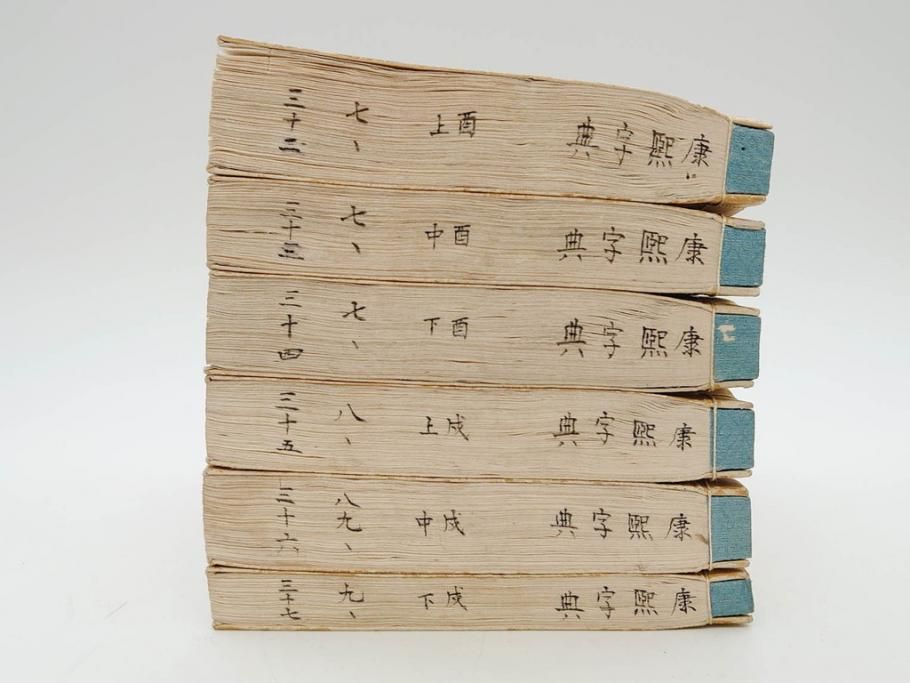 康熙字典 酉上 七、 三十二
康熙字典 酉中 七、 三十三
康熙字典 酉下 七、 三十四
康熙字典 戌上 八、 三十五
康熙字典 戌中 八九、 三十六
康熙字典 戌下 九、 三十七